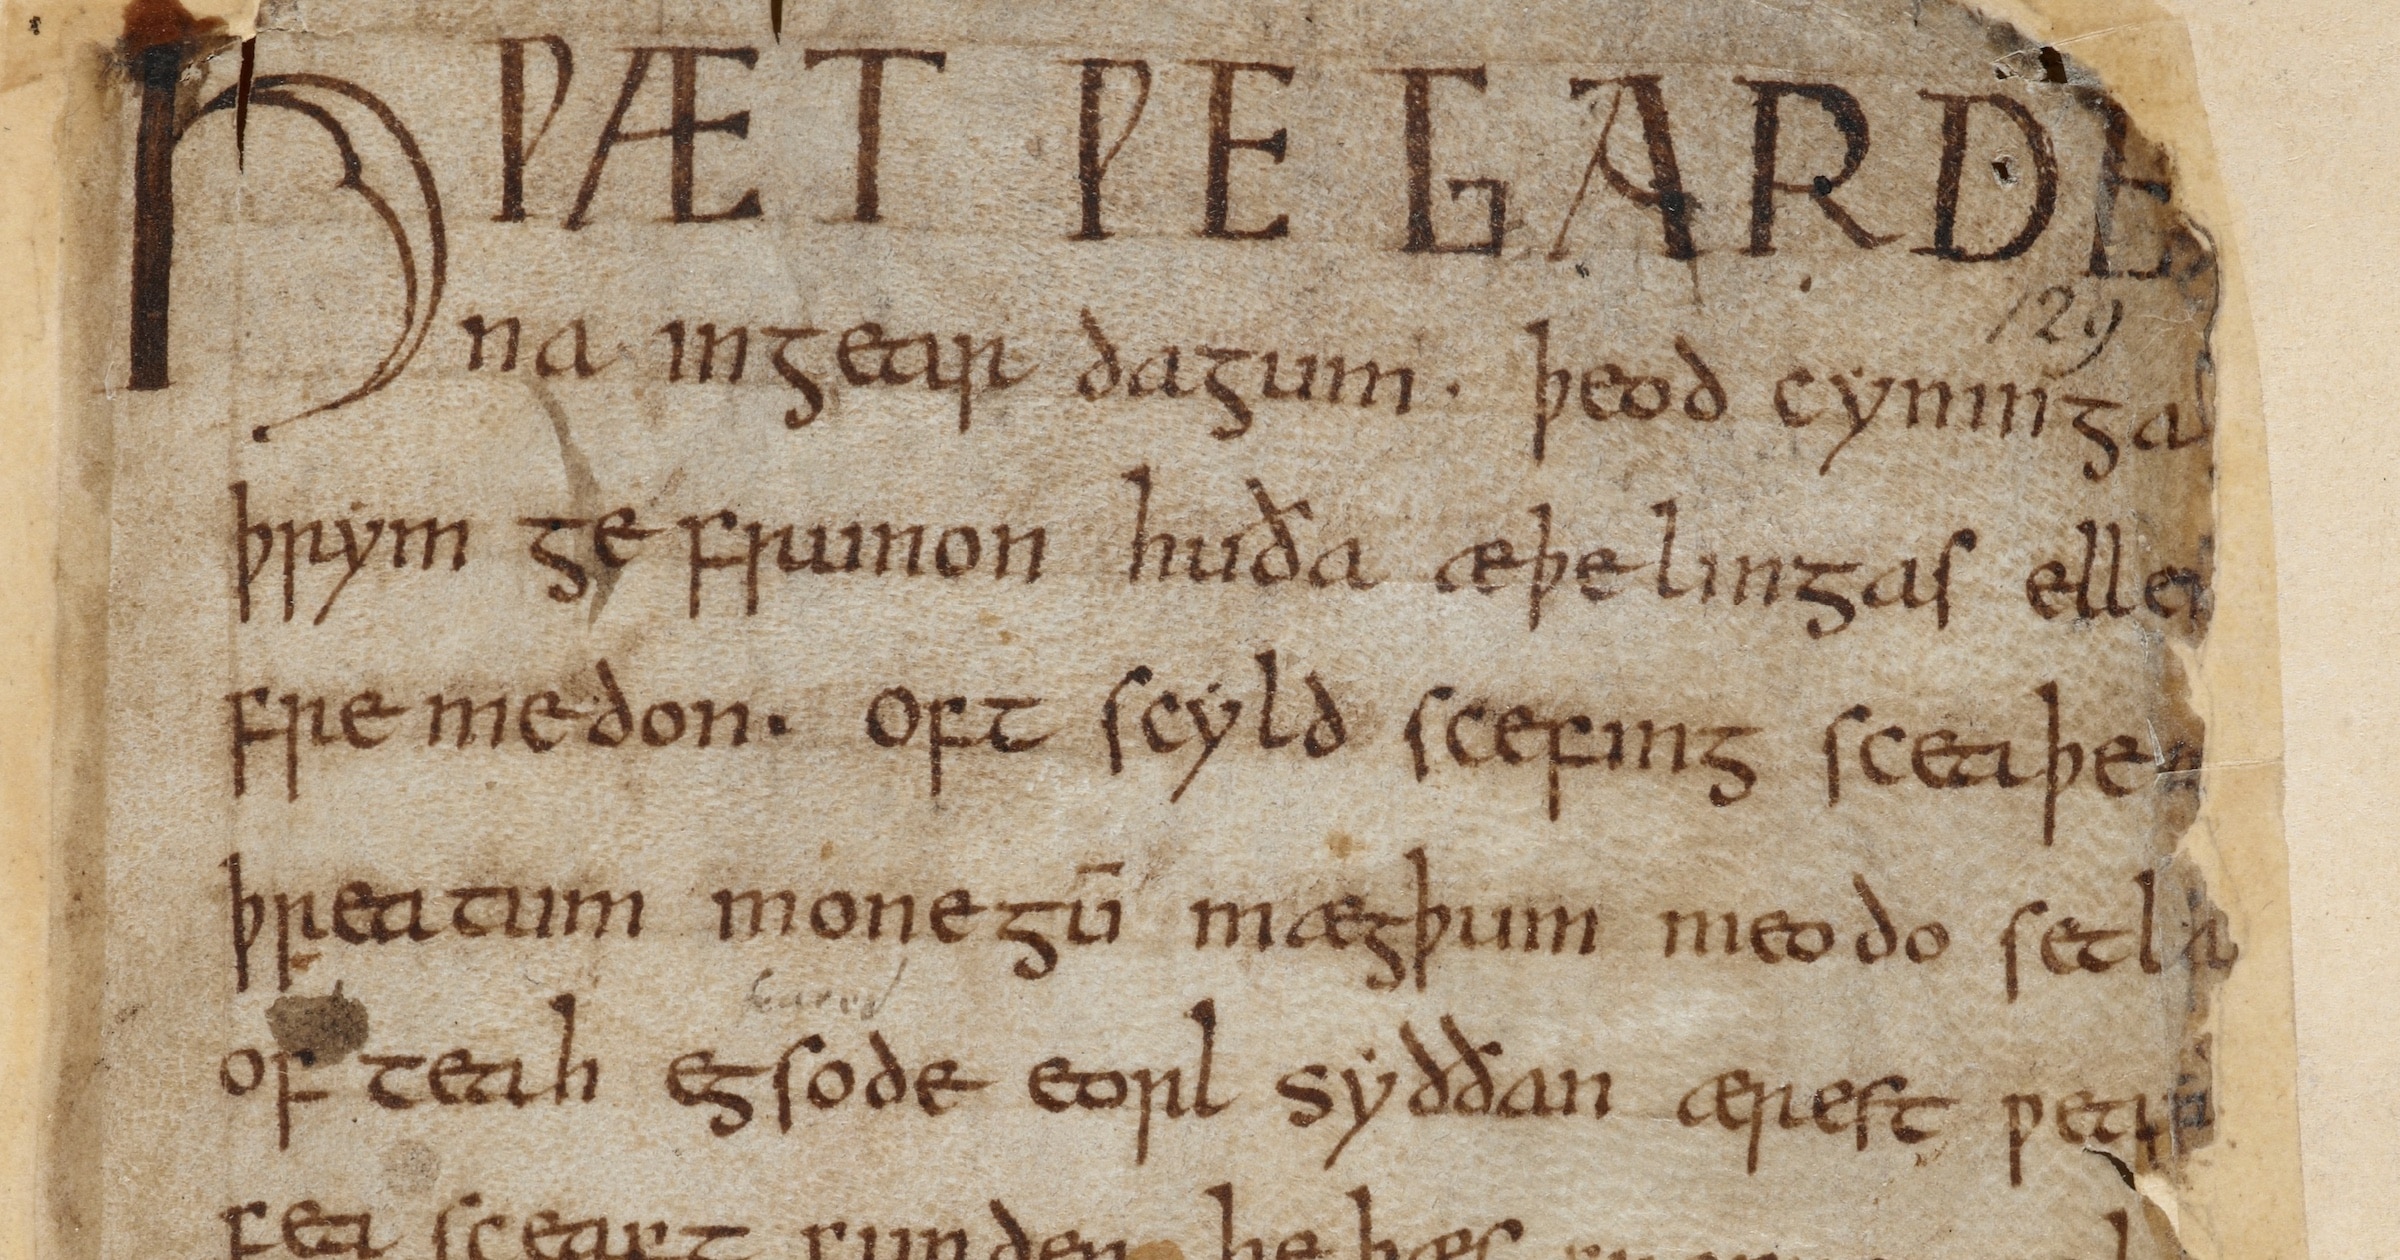 HǷÆT ǷE GARDE
na ingear dagum. þeod cyninga
þrym ge frunon huða æþelingas elle
fremedon. oft scyld scefing sceaþe
þreatum monegū mægþum meodo setla
of teah egsode eorl syððan ærest ƿear
fea sceaft funden he þæs
129